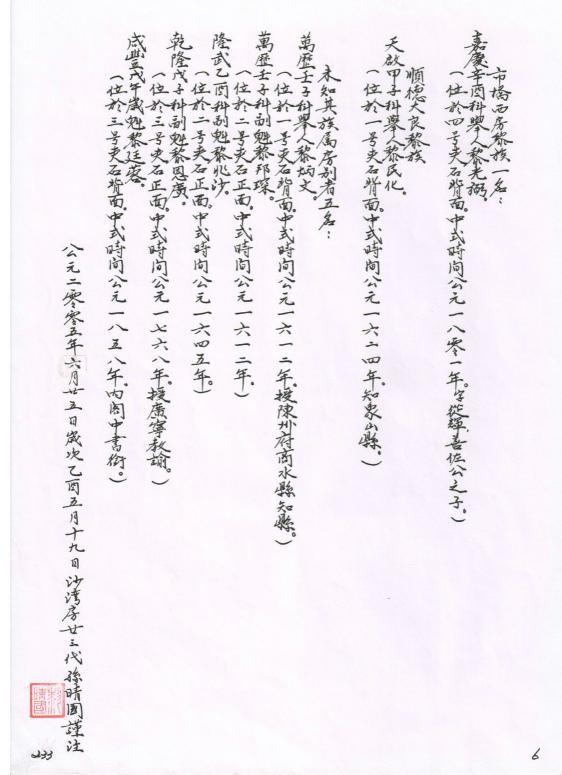 市橋西房黎族一名：
嘉慶辛酉科舉人黎光弼。
（位於四号夹石背面。中式時间公元一八零一年。字從輝，善佐公之子。）
順德大良黎族
天啟甲子科舉人黎民化。
（位於一号夹石背面。中式時间公元一六二四年。知象山縣。）
未知其族属房别者五名：
萬歷壬子科舉人黎炳文。
（位於一号夹石背面。中式時间公元一六一二年。授陳州府商水縣知縣。）
萬歷壬子科副魁黎邦琛。
（位於二号夹石正面。中式時间公元一六一二年。）
隆武乙酉科副魁黎兆沙。
（位於二号夹石正面。中式時间公元一六四五年。）
乾隆戊子科副魁黎恩廣。
（位於三号夹石正面。中式時间公元一七六八年。授廣寧教諭。）
咸豐戊午歲魁黎廷蓉。
（位於三号夹石背面。中式時间公元一八五八年。内阁中書銜。）
公元二零零五年六月廿五日歲次乙酉五月十九日沙湾房廿三代孫晴國謹注
233
6